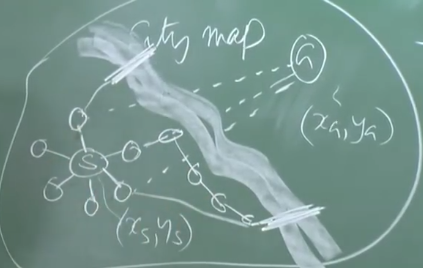 City map
G
(xG, yG)
S
(xS, yS)